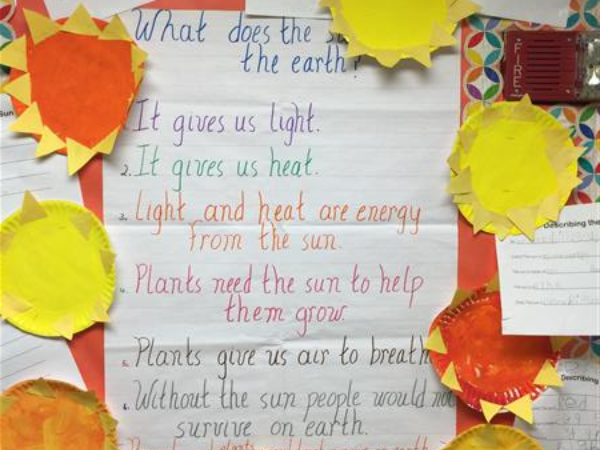 What does the
the earth?
It gives us light.
2. It gives us heat.
3. Light and heat are energy
from the sun.
Plants need the sun to help
them grow.
5. Plants give us air to breath
6. Without the sun people would not
survive on earth.
FIRE
Sun
Describing the
Describing